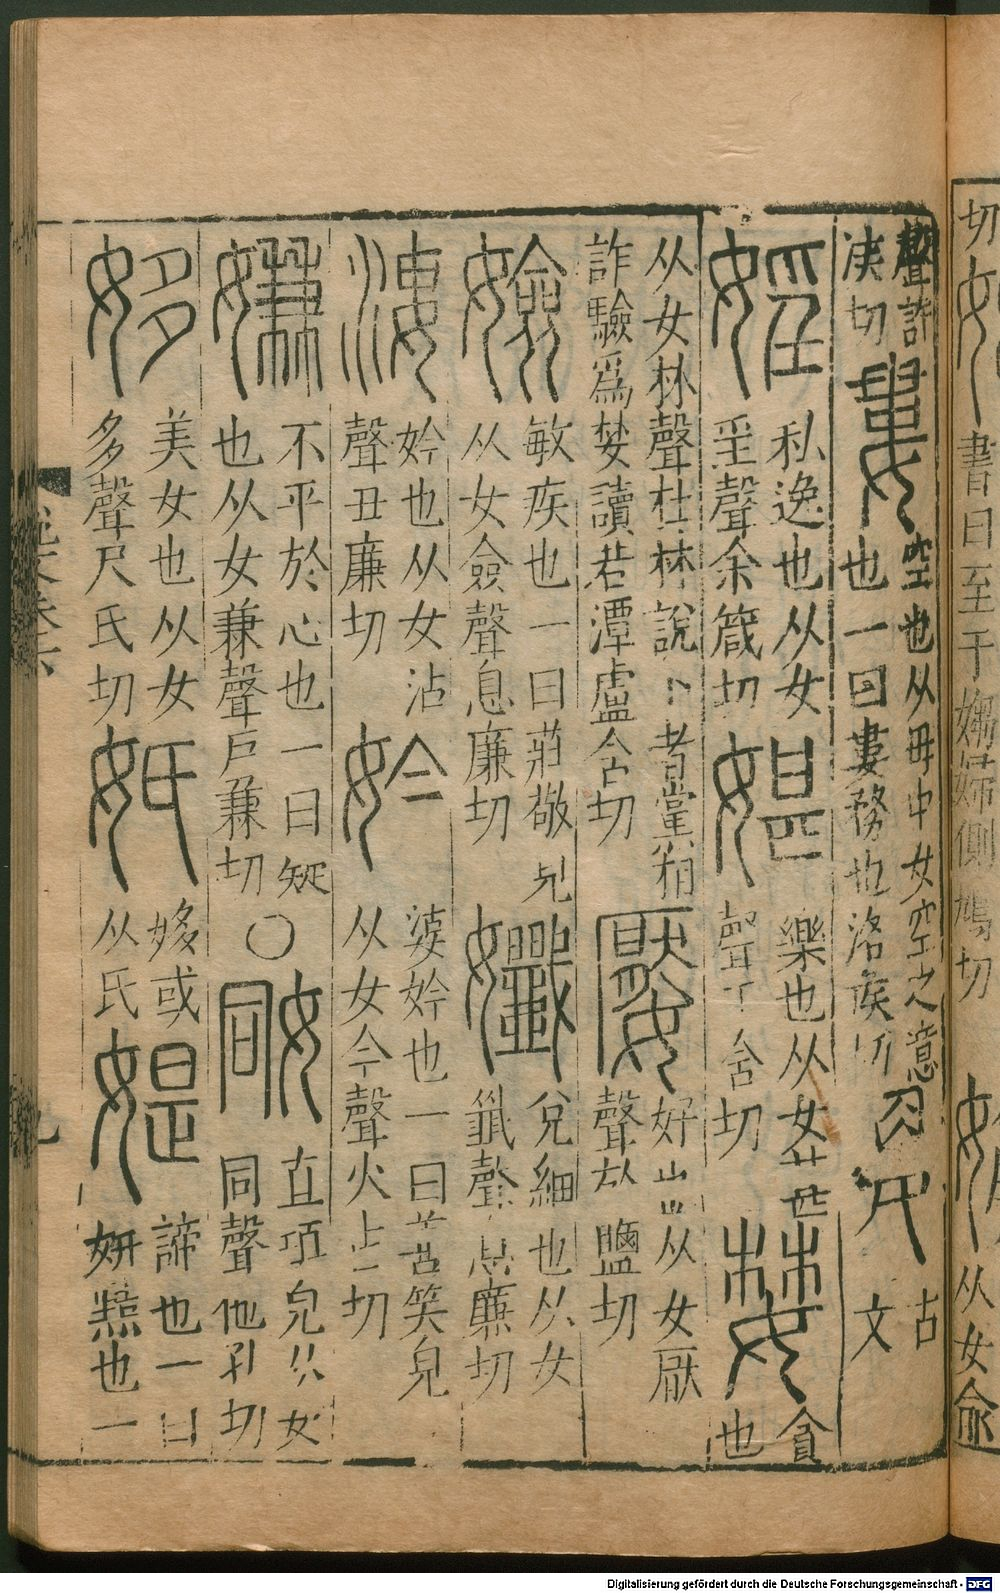 切
書曰至于媰婦側鳩切
从女兪
聲許
庚切
婁
空也从毋中女空之意
也一曰婁務也洛矦切
古
文
婬
私逸也从女
㸒聲余箴切
媅
樂也从女甚
聲丁含切
婪
貪
也
从女林聲杜林說卜者黨相
詐驗爲婪讀若潭盧含切
嬮
好也从女厭
聲於鹽切
嬐
敏疾也一曰莊敬皃
从女僉聲息廉切
孅
兌細也从女
韱聲息廉切
婆
妗也从女沾
聲丑廉切
妗
婆妗也一曰善笑皃
从女今聲火占切
嫌
不平於心也一曰疑
也从女兼聲戶兼切
○
姛
直項皃从女
同聲他孔切
姼
美女也从女
多聲尺氏切
㚶
姼或
从氏
媞
諦也一曰
妍黠也一
說文卷六
九
Digitalisierung gefördert durch die Deutsche Forschungsgemeinschaft - DFG